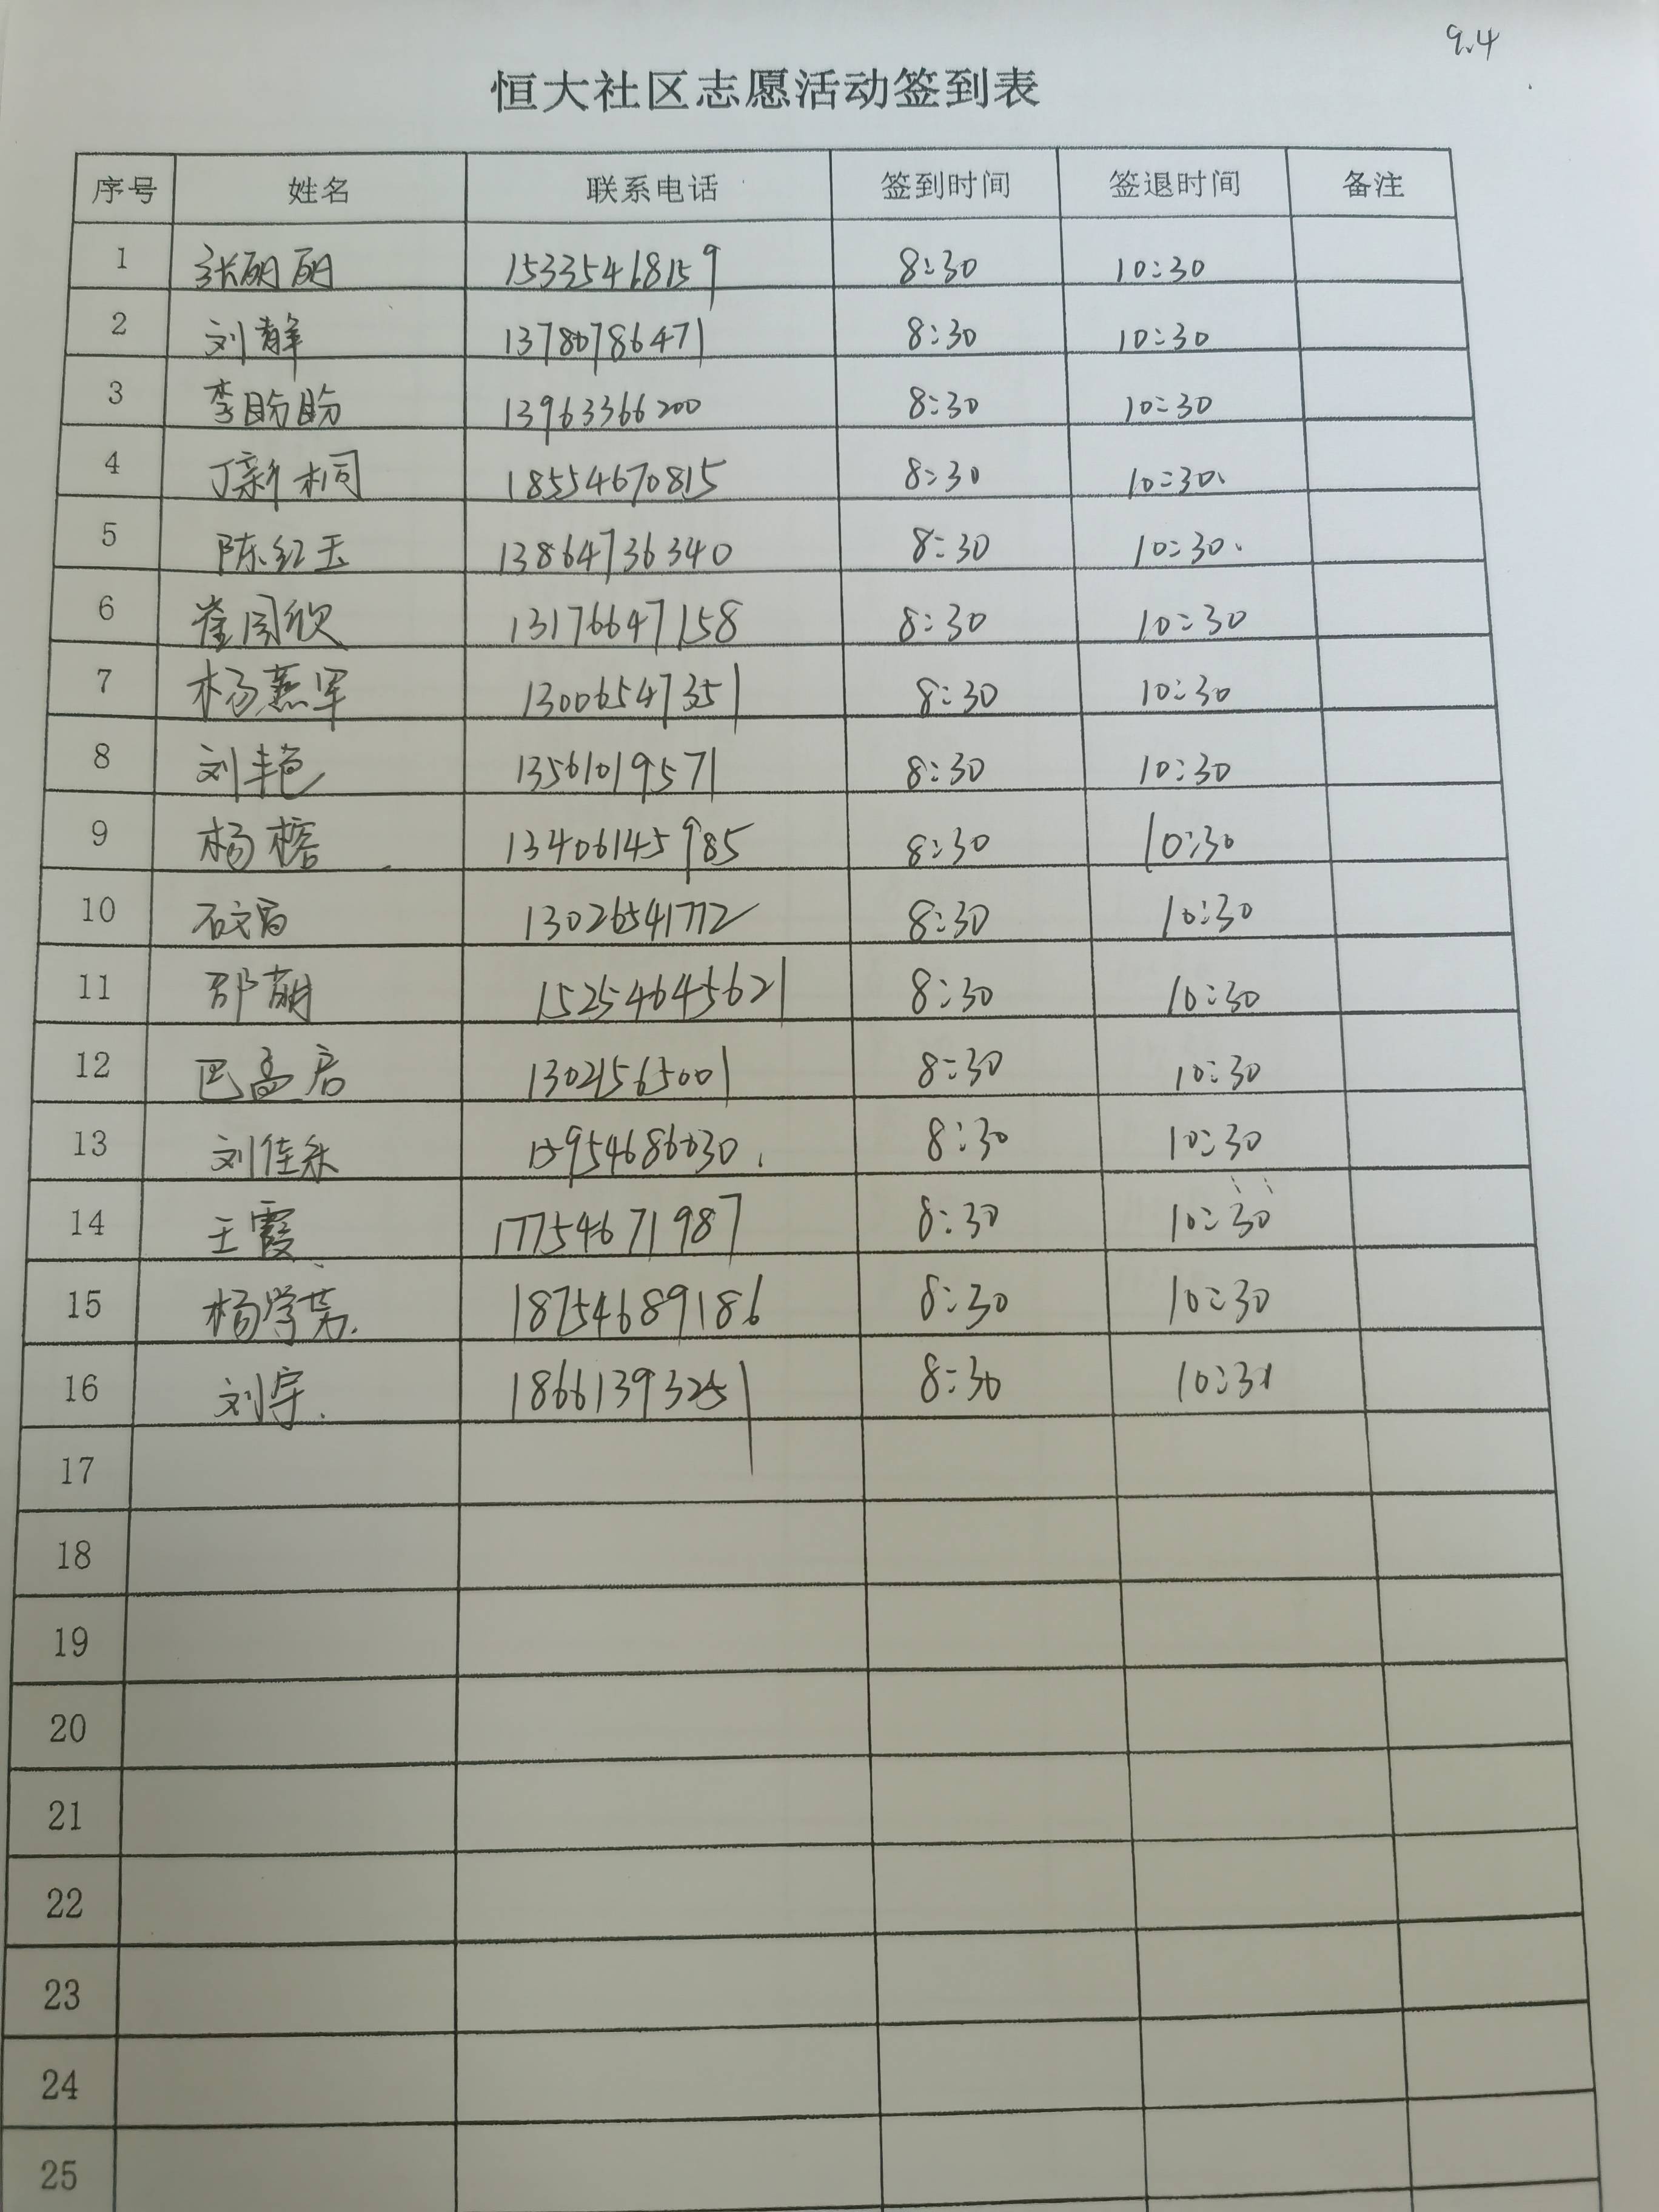 9.4
恒大社区志愿活动签到表
序号 姓名 联系电话 签到时间 签退时间 备注
1 张丽丽 15335468159 8:30 10:30
2 刘静 13780786471 8:30 10:30
3 李盼盼 13963366200 8:30 10:30
4 丁新桐 18554670815 8:30 10:30
5 陈红玉 13864736340 8:30 10:30
6 崔国欣 13176647158 8:30 10:30
7 杨燕军 13006547351 8:30 10:30
8 刘艳 13561019571 8:30 10:30
9 杨榕 13406145985 8:30 10:30
10 13026541772 8:30 10:30
11 邵萌 15254645621 8:30 10:30
12 巴高启 13021565001 8:30 10:30
13 刘佳永 8:30 10:30
14 王霞 17754671987 8:30 10:30
15 杨学芳 18754689186 8:30 10:30
16 刘宇 18661393251 8:30 10:31
17
18
19
20
21
22
23
24
25